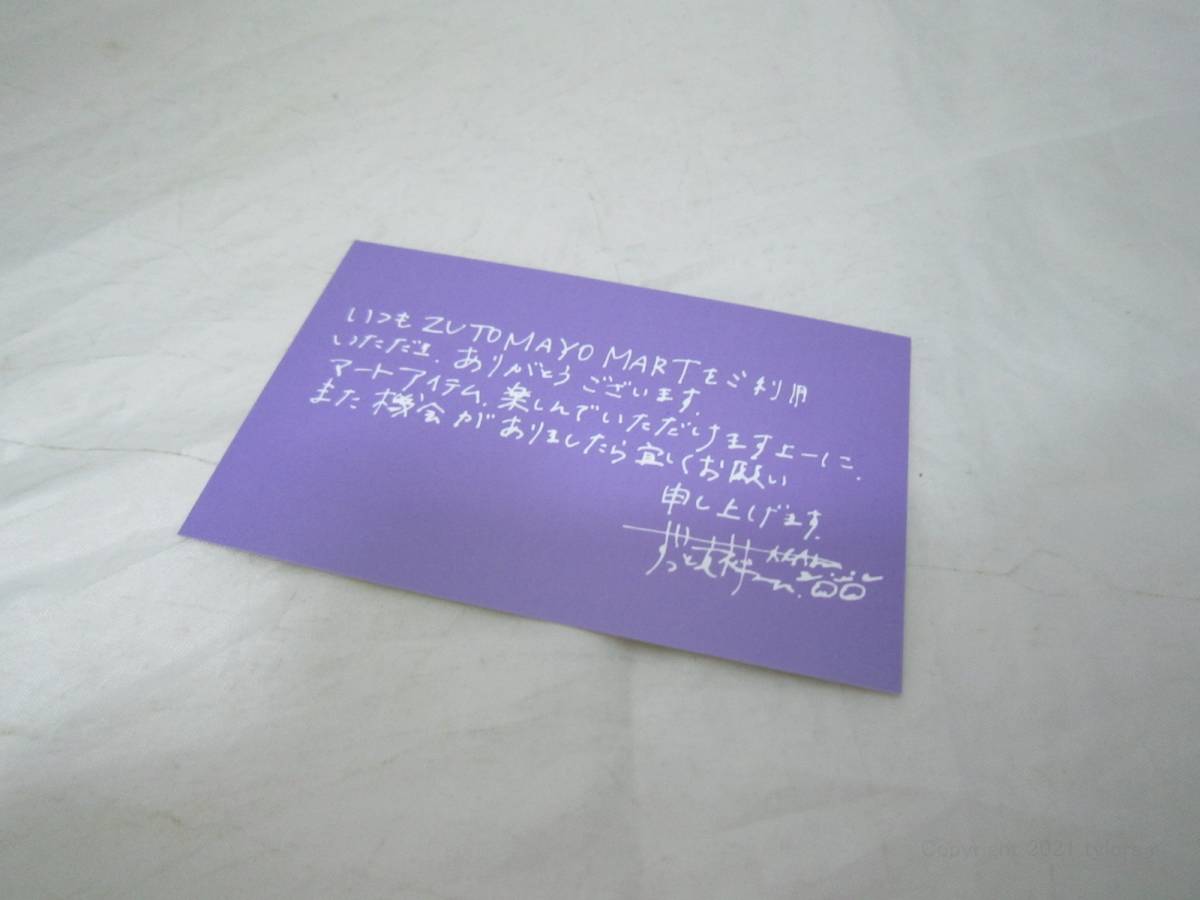 いつも ZUTOMAYO MARTをご利用
いただき、ありがとうございます。
マートアイテム、楽しんでいただけますよーに。
また機会がありましたら宜しくお願い
申し上げます。
Copyright 2021